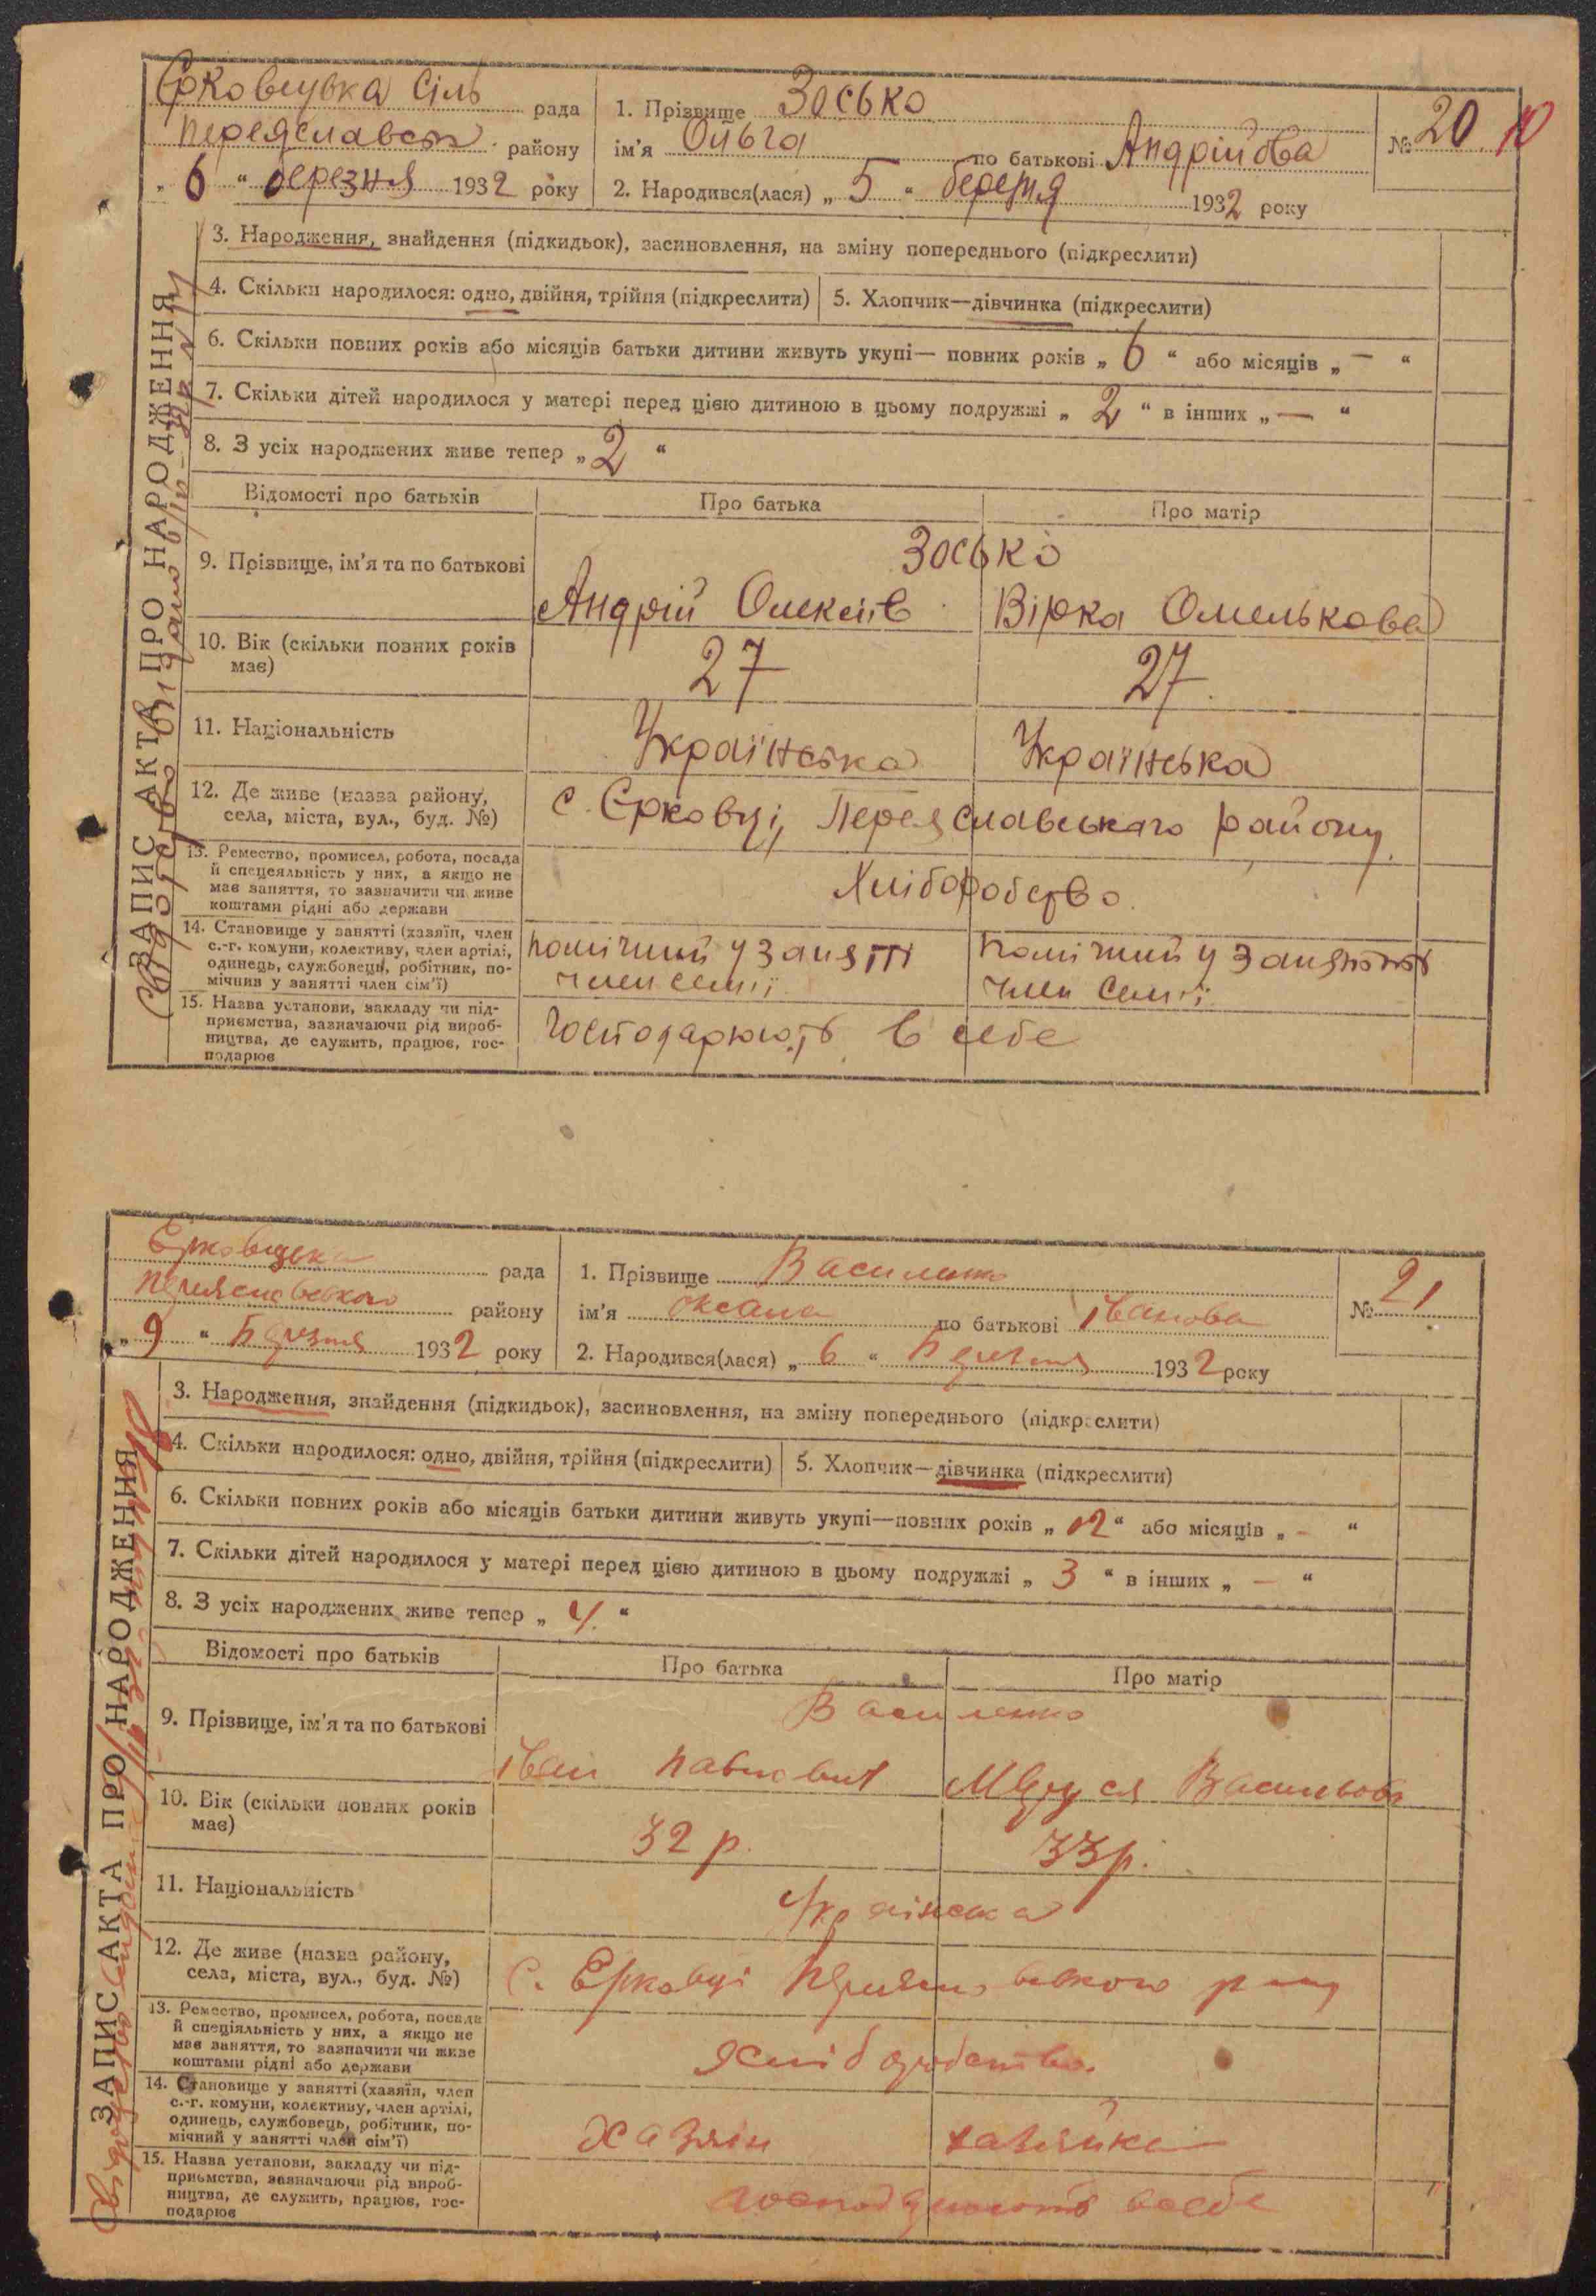 Єрковецька Сіль рада
Переяславськ району
„ 6 “ березня 1932 року
1. Прізвище Зосько
ім'я Ольга по батькові Андрійова
2. Народився(лася) „ 5 “ березня 1932 року
№ 20. 10
ЗАПИС АКТА ПРО НАРОДЖЕННЯ
3. Народження, знайдення (підкидьок), засиновлення, на зміну попереднього (підкреслити)
4. Скільки народилося: одно, двійня, трійня (підкреслити)
5. Хлопчик—дівчинка (підкреслити)
6. Скільки повних років або місяців батьки дитини живуть укупі— повних років „ 6 “ або місяців „ — “
7. Скільки дітей народилося у матері перед цією дитиною в цьому подружжі „ 2 “ в інших „ — “
8. З усіх народжених живе тепер „ 2 “
Відомості про батьків
Про батька
Про матір
9. Прізвище, ім'я та по батькові
Зосько
Андрій Олексіїв
Вірка Омелькова
10. Вік (скільки повних років
має)
27
27
11. Національність
Українська
Українська
12. Де живе (назва району,
села, міста, вул., буд. №)
с. Єрковці, Переяславського району
13. Ремество, промисел, робота, посада
й спецеяльність у них, а якщо не
має заняття, то зазначити чи живе
коштами рідні або держави
Хліборобство
14. Становище у занятті (хазяїн, член
с.-г. комуни, колективу, член артілі,
одинець, службовець, робітник, по-
мічнив у занятті член сім'ї)
помічний у занятті
член семії
помічний у занятті
член семії
15. Назва установи, закладу чи під-
приємства, зазначаючи рід вироб-
ництва, де служить, працює, гос-
подарює
Господарюють в себе
Єрковецька рада
Переяславського району
„ 9 “ Березня 1932 року
1. Прізвище Василенко
ім'я Оксана по батькові Іванова
2. Народився(лася) „ 6 “ Березня 1932 року
№ 21
ЗАПИС АКТА ПРО НАРОДЖЕННЯ
3. Народження, знайдення (підкидьок), засиновлення, на зміну попереднього (підкреслити)
4. Скільки народилося: одно, двійня, трійня (підкреслити)
5. Хлопчик—дівчинка (підкреслити)
6. Скільки повних років або місяців батьки дитини живуть укупі—повних років „ 12 “ або місяців „ - “
7. Скільки дітей народилося у матері перед цією дитиною в цьому подружжі „ 3 “ в інших „ — “
8. З усіх народжених живе тепер „ 4. “
Відомості про батьків
Про батька
Про матір
9. Прізвище, ім'я та по батькові
Василенко
Іван Павлович
Маруся Василівна
10. Вік (скільки повних років
має)
32 р.
33 р.
11. Національність
Українська
12. Де живе (назва району,
села, міста, вул., буд. №)
с. Єрковці Переяславського р-ну
13. Ремество, промисел, робота, посада
й спеціяльність у них, а якщо не
має заняття, то зазначити чи живе
коштами рідні або держави
хліборобство.
14. Становище у занятті (хазяїн, член
с.-г. комуни, колективу, член артілі,
одинець, службовець, робітник, по-
мічний у занятті член сім'ї)
хазяїн
хазяйка
15. Назва установи, закладу чи під-
приємства, зазначаючи рід вироб-
ництва, де служить, працює, гос-
подарює
господарюють в себе